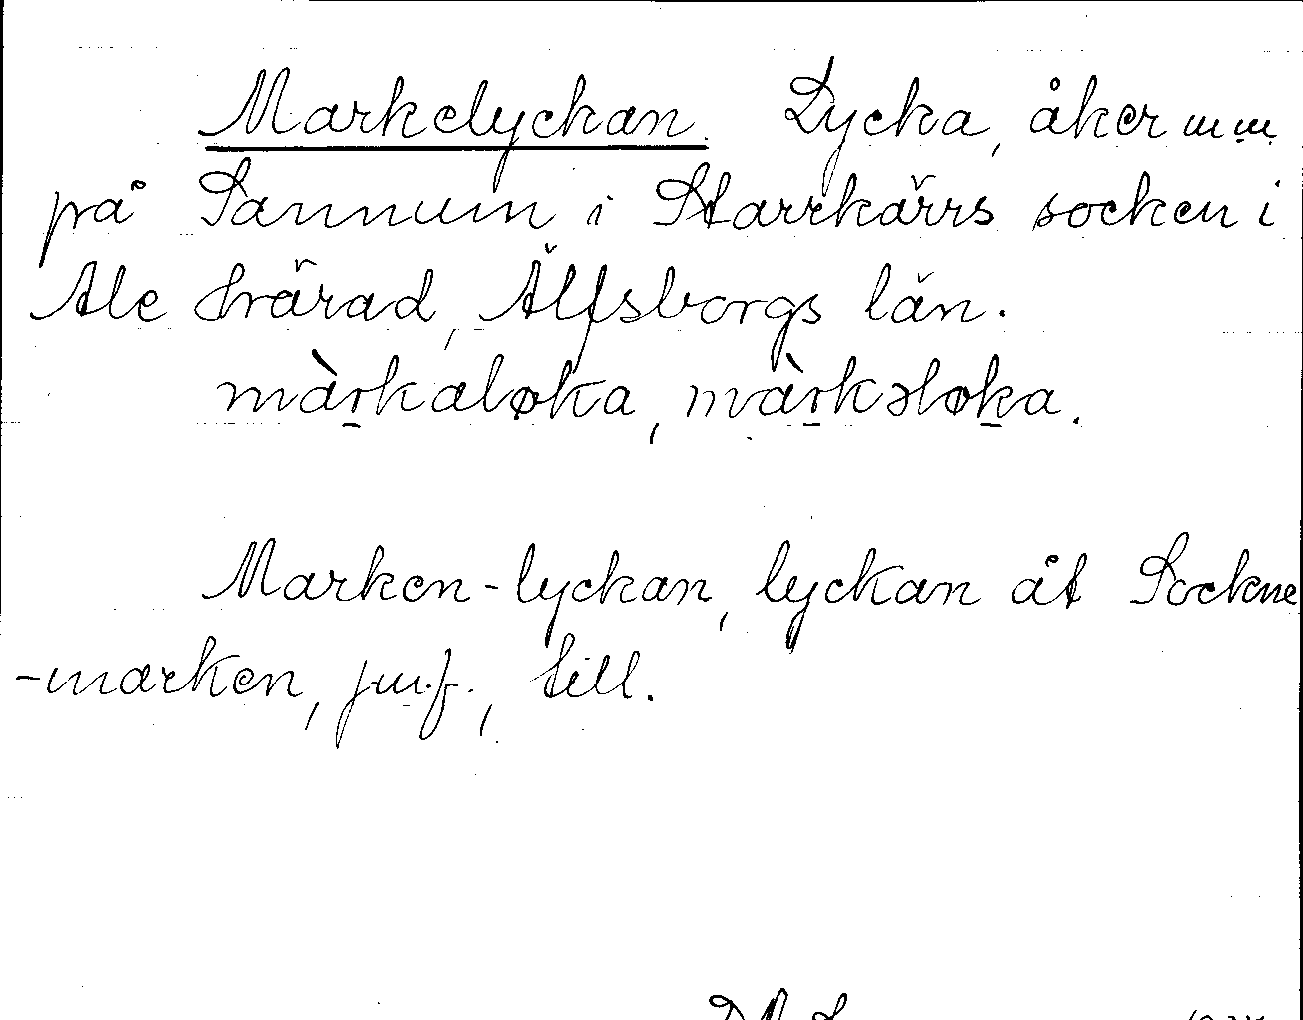 Markelyckan. Lycka, åker m m
på Sannum i Starrkärrs socken i
Ale härad, Älfsborgs län.
màrkaløka, màrkəløka.
Marken-lyckan, lyckan åt Sockne
-marken, jm.f., till.